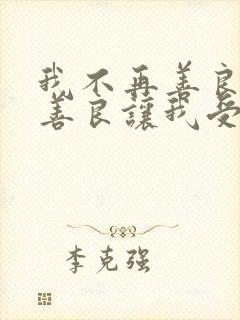 我不再善良
善良讓我受
李克强